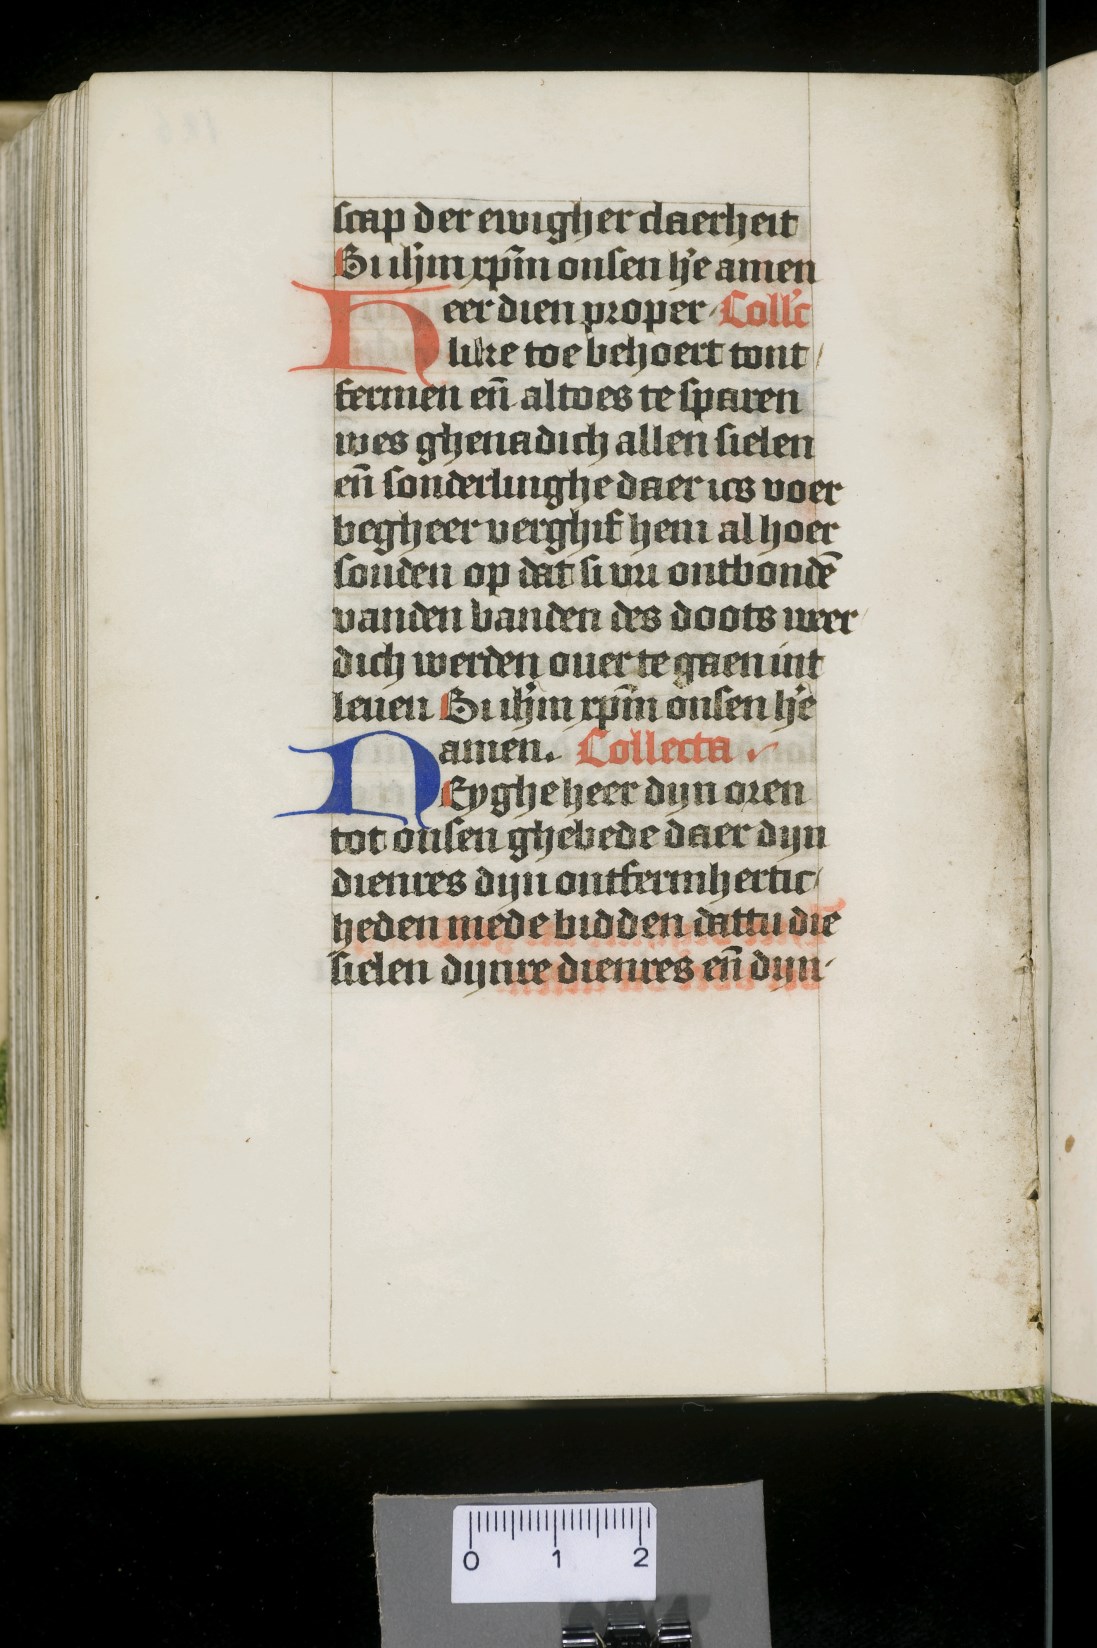 scap der ewigher claerheit
Bi ih̄m xp̄m onsen h̓e amen
Heer dien proper Coll̓c
like toe behoert tont
fermen en̄ altoes te sparen
wes ghenadich allen sielen
en̄ sonderlinghe daer ics voer
begheer verghif hem al hoer
sonden op dat si vri ontbondē
vanden banden des doots weer
dich werden ouer te gaen int
leuen Bi ih̄m xp̄m onsen h̓e
amen. Collecta
NEyghe heer dijn oren
tot onsen ghebede daer dijn
dienres dijn ontfermhertic
heden mede bidden dattu die
sielen dijnre dienres en̄ dijn
0 1 2